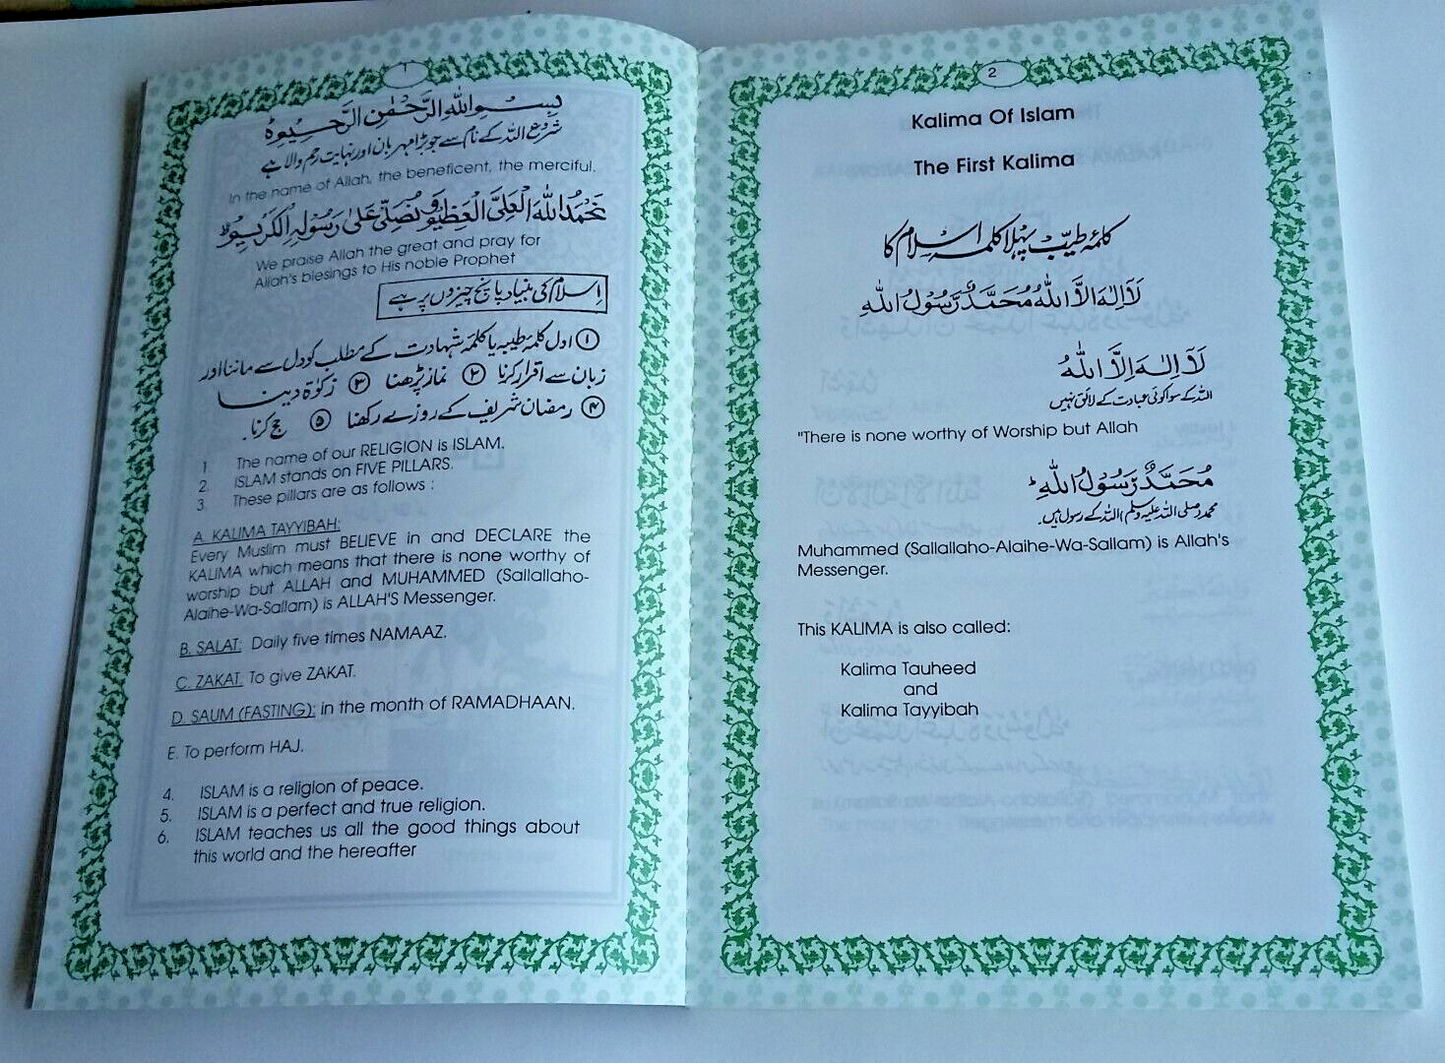 1
بِسْمِ اللهِ الرَّحْمٰنِ الرَّحِيْمِ
شروع اللہ کے نام سے جو بڑا مہربان اور نہایت رحم والا ہے
In the name of Allah, the beneficent, the merciful.
نَحْمَدُ اللهَ الْعَلِيَّ الْعَظِيْمَ وَنُصَلِّيْ عَلٰى رَسُوْلِهِ الْكَرِيْمِ
We praise Allah the great and pray for
Allah's blesings to His noble Prophet
اِسلام کی بنیاد پانچ چیزوں پر ہے
① اول کلمۂ طیبہ یا کلمۂ شہادت کے مطلب کو دل سے ماننا اور
زبان سے اقرار کرنا ② نماز پڑھنا ③ زکوٰۃ دینا
④ رمضان شریف کے روزے رکھنا ⑤ حج کرنا۔
1 The name of our RELIGION is ISLAM.
2. ISLAM stands on FIVE PILLARS.
3. These pillars are as follows :
A. KALIMA TAYYIBAH:
Every Muslim must BELIEVE in and DECLARE the
KALIMA which means that there is none worthy of
worship but ALLAH and MUHAMMED (Sallallaho-
Alaihe-Wa-Sallam) is ALLAH'S Messenger.
B. SALAT: Daily five times NAMAAZ.
C. ZAKAT. To give ZAKAT.
D. SAUM (FASTING): in the month of RAMADHAAN.
E. To perform HAJ.
4. ISLAM is a religion of peace.
5. ISLAM is a perfect and true religion.
6. ISLAM teaches us all the good things about
this world and the hereafter
2
Kalima Of Islam
The First Kalima
کلمۂ طیّب پہلا کلمہ اسلام کا
لَآ اِلٰهَ اِلَّا اللهُ مُحَمَّدٌ رَّسُوْلُ اللهِ
لَآ اِلٰهَ اِلَّا اللهُ
اللہ کے سوا کوئی عبادت کے لائق نہیں
"There is none worthy of Worship but Allah
مُحَمَّدٌ رَّسُوْلُ اللهِ
محمد (صلی اللہ علیہ وسلم) اللہ کے رسول ہیں۔
Muhammed (Sallallaho-Alaihe-Wa-Sallam) is Allah's
Messenger.
This KALIMA is also called:
Kalima Tauheed
and
Kalima Tayyibah